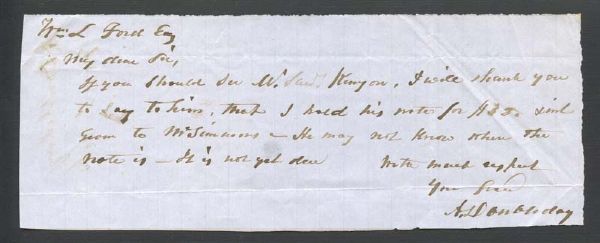 Wm L Ford Esq
My dear Sir,
If you should See Mr. Kenyon, I will thank you
to say to him, that I hold his note for
given to Mr Simmons – He may not know where the
note is – It is not yet due With much respect
Your friend
A Doubleday